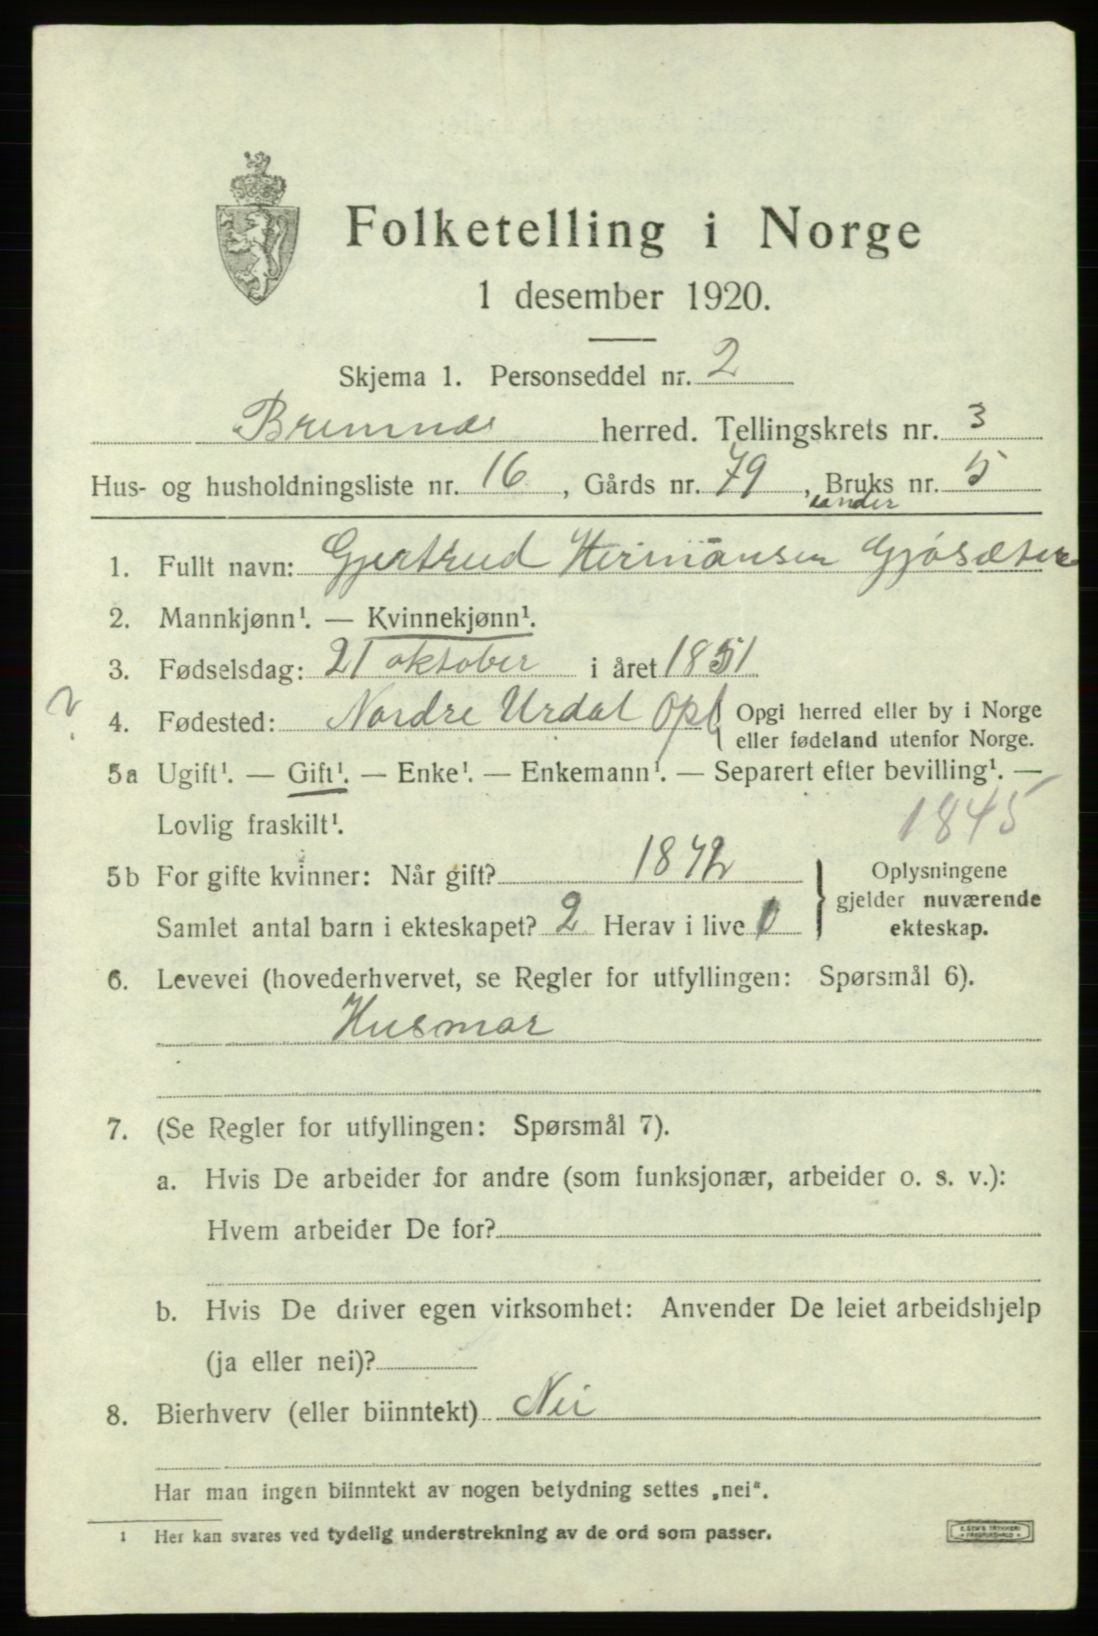 Folketelling i Norge
1 desember 1920.
Skjema 1. Personseddel nr. 2
Bremnes herred. Tellingskrets nr. 3
Hus- og husholdningsliste nr. 16, Gårds nr. 79, Bruks nr. 5
under
1. Fullt navn: Gjertrud Hermansen Gjøsæter
2. Mannkjønn¹. — Kvinnekjønn¹.
3. Fødselsdag: 21 oktober i året 1851
4. Fødested: Nordre Urdal Opl Opgi herred eller by i Norge
eller fødeland utenfor Norge.
5a Ugift¹. — Gift¹. — Enke¹. — Enkemann¹. — Separert efter bevilling¹. —
Lovlig fraskilt¹.
1845
5b For gifte kvinner: Når gift? 1872 Oplysningene
gjelder nuværende
Samlet antal barn i ekteskapet? 2 Herav i live 0 ekteskap.
6. Levevei (hovederhvervet, se Regler for utfyllingen: Spørsmål 6).
Husmor
7. (Se Regler for utfyllingen: Spørsmål 7).
a. Hvis De arbeider for andre (som funksjonær, arbeider o. s. v.):
Hvem arbeider De for?
b. Hvis De driver egen virksomhet: Anvender De leiet arbeidshjelp
(ja eller nei)?
8. Bierhverv (eller biinntekt) Nei
Har man ingen biinntekt av nogen betydning settes „nei“.
1 Her kan svares ved tydelig understrekning av de ord som passer.